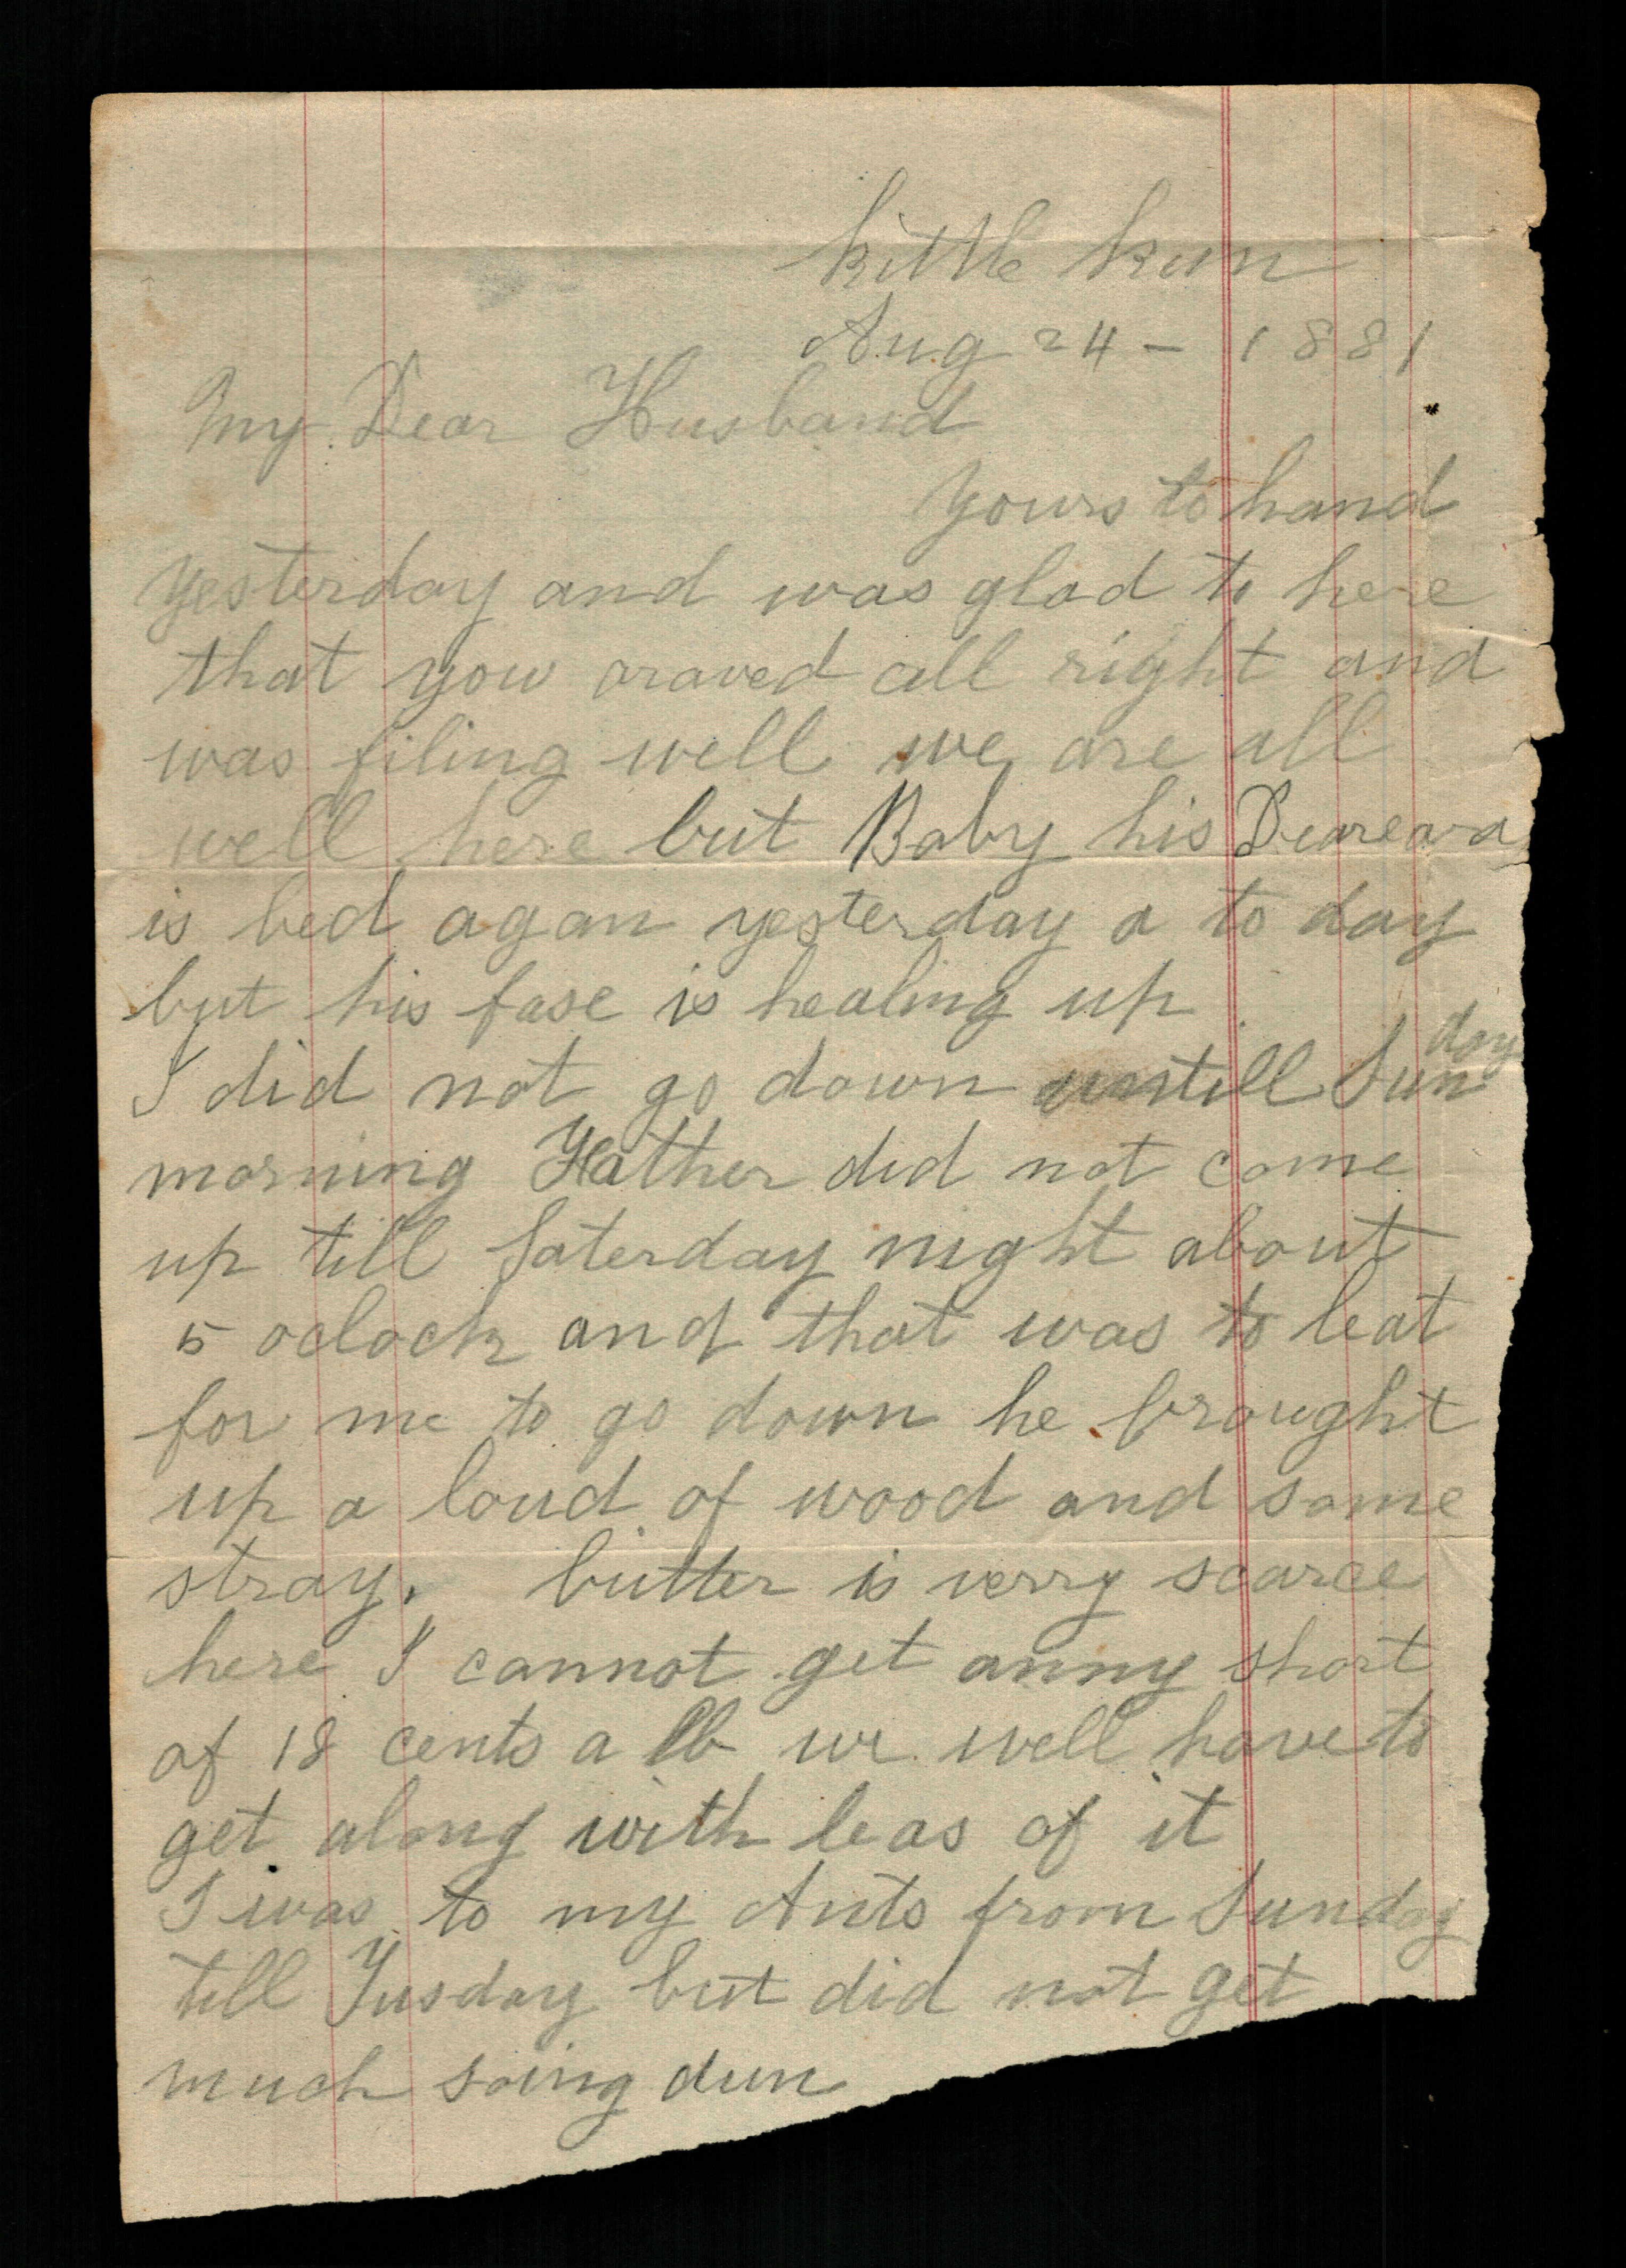 Kittle Run
Aug 24 - 1881
My Dear Husband
Yours to hand
yesterday and was glad to here
that you araved all right and
was filing well we are all
well here but Baby his Diareara
is bed agan yesterday a to day
but his fase is healing up
I did not go down untill Sunday
morning Father did not come
up till Saterday night about
5 oclock and that was to leat
for me to go down he brought
up a loud of wood and some
stray. butter is verry scarce
here I cannot get anny short
of 18 cents a lb we well have to
get along with leas of it
I was to my Ants from Sunday
till Tusday but did not get
much soing dun